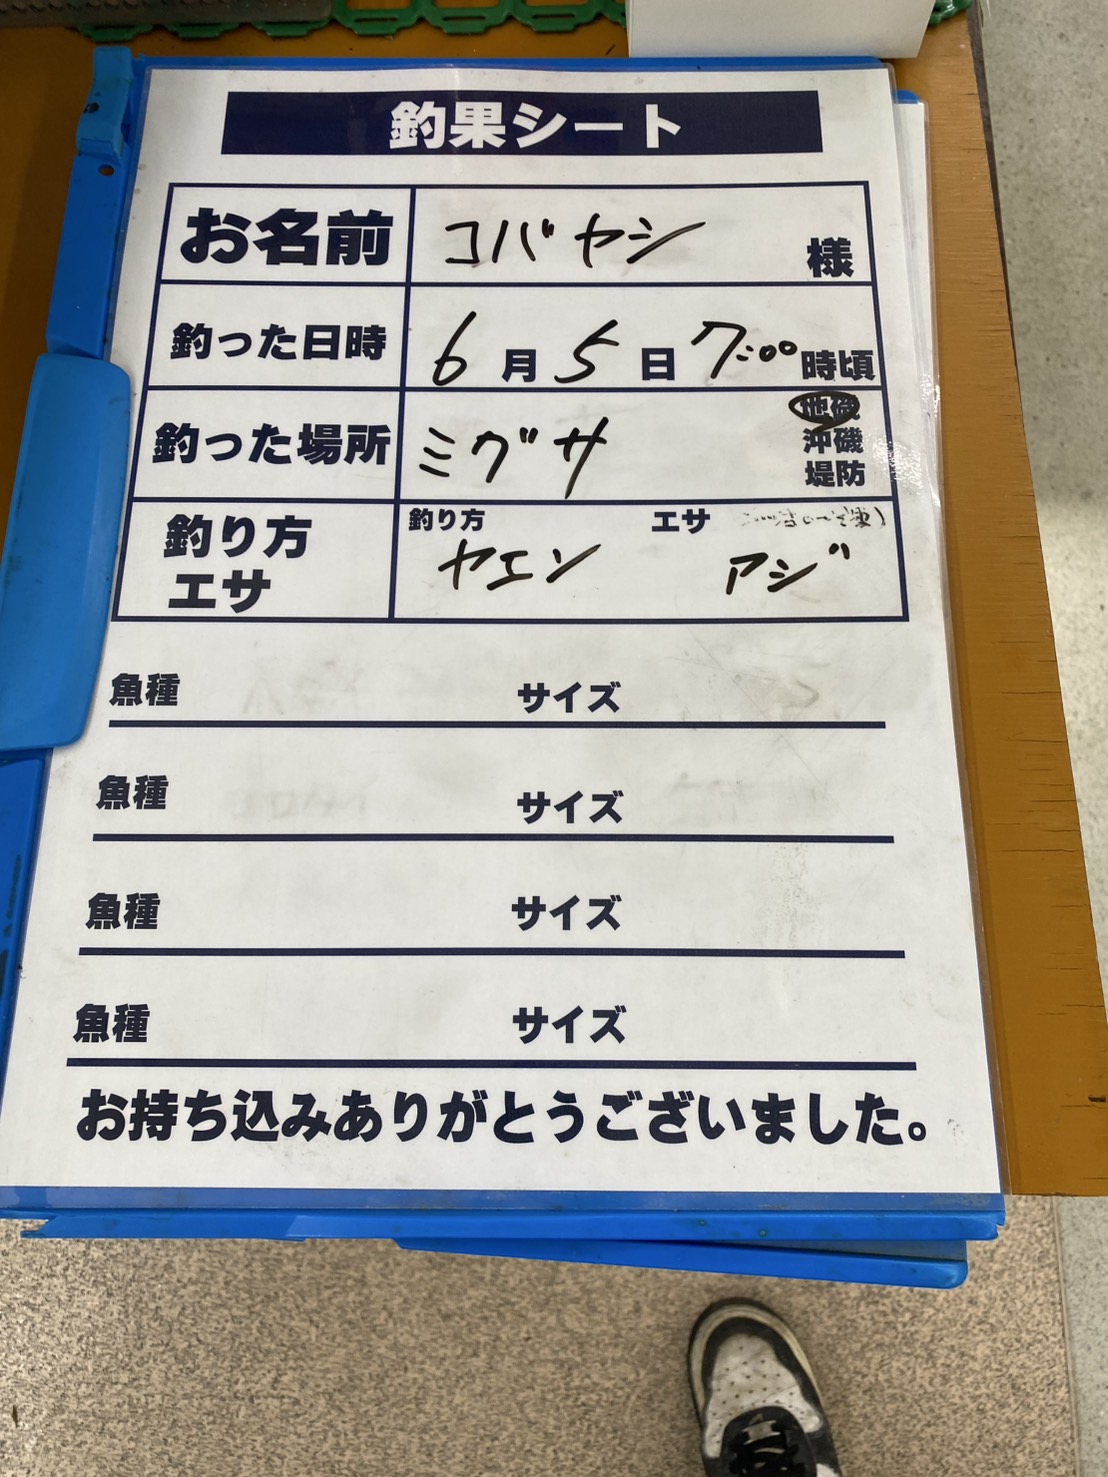 釣果シート
お名前 コバヤシ 様
釣った日時 6月5日 7:00時頃
釣った場所 ミグサ 地磯
沖磯
堤防
釣り方 エサ
釣り方 ヤエン アジ
エサ
魚種 サイズ
魚種 サイズ
魚種 サイズ
魚種 サイズ
お持ち込みありがとうございました。